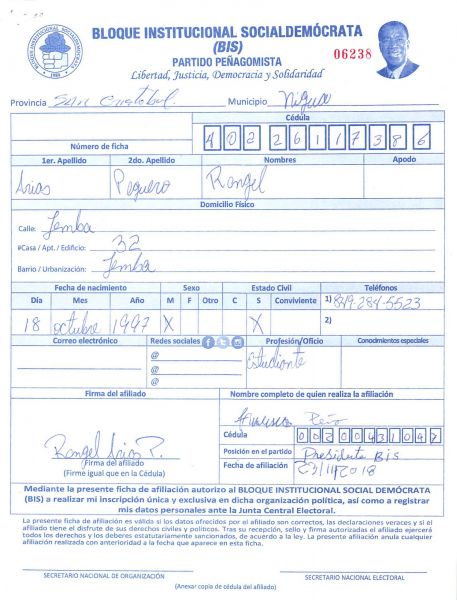 BLOQUE INSTITUCIONAL SOCIALDEMÓCRATA
(BIS)
PARTIDO PEÑAGOMISTA
Libertad, Justicia, Democracia y Solidaridad
06238
BLOQUE INSTITUCIONAL SOCIALDEMOCRATA
BIS
Provincia San Cristobal Municipio Nigua
Cédula
Número de ficha 40226117386
1er. Apellido 2do. Apellido Nombres Apodo
Arias Peguero Rangel
Domicilio Físico
Calle: Jemba
#Casa / Apt. / Edificio: 32
Barrio / Urbanización: Jemba
Fecha de nacimiento Sexo Estado Civil Teléfonos
Día Mes Año M F Otro C S Conviviente 1) 849-284-5523
18 octubre 1997 X X 2)
Correo electrónico Redes sociales Profesión/Oficio Conocimientos especiales
@ Estudiante
@
@
Firma del afiliado Nombre completo de quien realiza la afiliación
Francisco Peña
Cédula 00200431047
Rangel Arias P. Posición en el partido Presidente BIS
Firma del afiliado Fecha de afiliación
(Firme igual que en la Cédula)
Mediante la presente ficha de afiliación autorizo al BLOQUE INSTITUCIONAL SOCIAL DEMÓCRATA
(BIS) a realizar mi inscripción única y exclusiva en dicha organización política, así como a registrar
mis datos personales ante la Junta Central Electoral.
La presente ficha de afiliación es válida si los datos ofrecidos por el afiliado son correctos, las declaraciones veraces y si el
afiliado tiene el disfrute de sus derechos civiles y políticos. Tras su recepción, sello y firma autorizadas el afiliado ejercerá
todos los derechos y los deberes estatutariamente sancionados, de acuerdo a la ley. La presente afiliación anula cualquier
afiliación realizada con anterioridad a la fecha que aparece en esta ficha.
SECRETARIO NACIONAL DE ORGANIZACIÓN SECRETARIO NACIONAL ELECTORAL
(Anexar copia de cédula del afiliado)